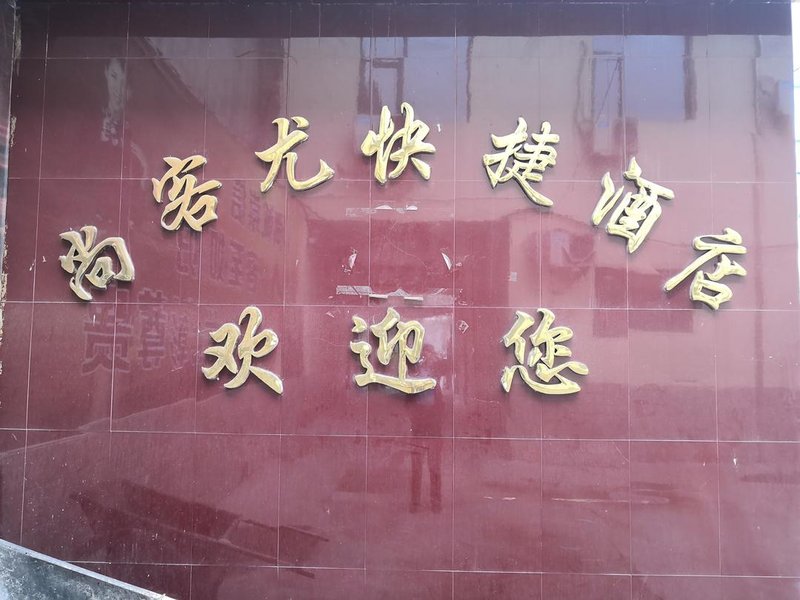 尚客尤快捷酒店
欢迎您